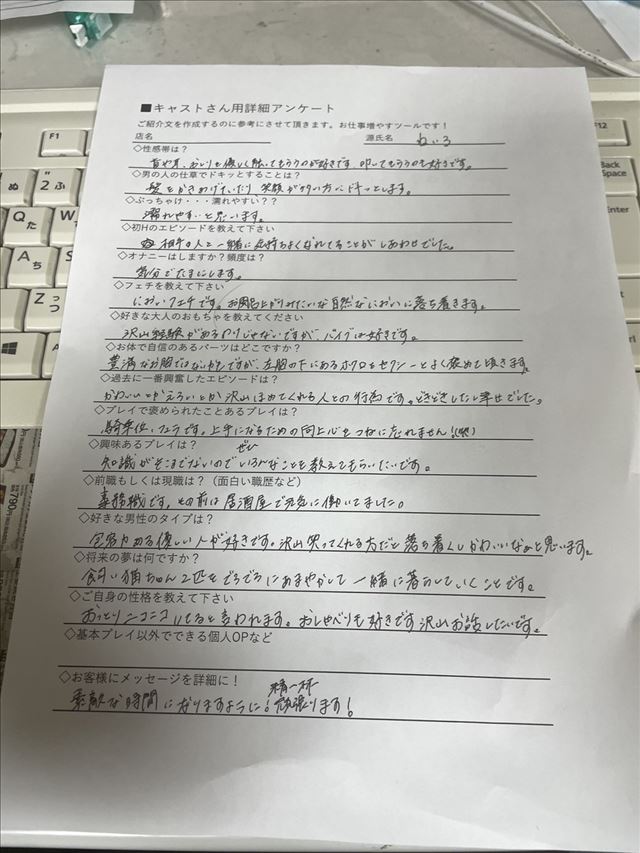 ■キャストさん用詳細アンケート
ご紹介文を作成するのに参考にさせて頂きます。お仕事増やすツールです！
店名 源氏名 ねいろ
◇性感帯は？
首や耳、おしりを優しく触ってもらうのが好きです 叩いてもらうのも好きです。
◇男の人の仕草でドキッとすることは？
髪をかきあげていたり 笑顔が多い方にドキッとします。
◇ぶっちゃけ・・・濡れやすい？？
濡れやすいと思います。
◇初Hのエピソードを教えて下さい
相手の人と一緒に気持ちよくなれてることがしあわせでした。
◇オナニーはしますか？頻度は？
気分でたまにします。
◇フェチを教えて下さい
においフェチです。お風呂上がりみたいな自然なにおいに落ち着きます。
◇好きな大人のおもちゃを教えてください
沢山経験があるわけじゃないですが、バイブは好きです。
◇お体で自信のあるパーツはどこですか？
豊満なお胸ではないかもですが、左胸の下にあるホクロをセクシーとよく褒めて頂きます。
◇過去に一番興奮したエピソードは？
かわいいとかえろいとか 沢山ほめてくれる人との行為です。どきどきしたし幸せでした。
◇プレイで褒められたことあるプレイは？
騎乗位、フェラです。上手になるための向上心をつねに忘れません！(笑)
◇興味あるプレイは？
知識がそこまでないので いろんなことを ぜひ 教えてもらいたいです。
◇前職もしくは現職は？（面白い職歴など）
事務職です。その前は居酒屋で元気に働いてました。
◇好きな男性のタイプは？
包容力ある優しい人が好きです。沢山笑ってくれる方だと落ち着くしかわいいなぁと思います。
◇将来の夢は何ですか？
飼い猫ちゃん2匹をでろでろにあまやかして 一緒に暮らしていくことです。
◇ご自身の性格を教えて下さい
おっとりニコニコしてると言われます。おしゃべりも好きです 沢山お話したいです。
◇基本プレイ以外でできる個人OPなど
◇お客様にメッセージを詳細に！
素敵な時間になりますように！精一杯頑張ります！
F1
F12